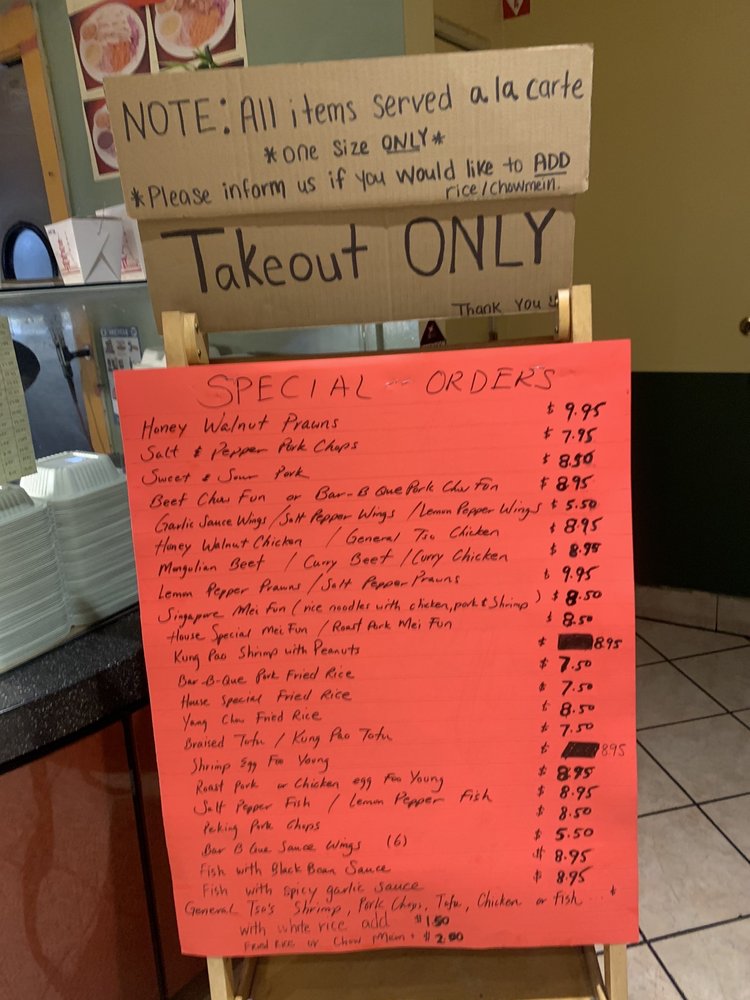 NOTE: All items served a la carte
*one size ONLY*
*Please inform us if you would like to ADD
rice/chowmein.
Takeout ONLY
Thank You
SPECIAL -- ORDERS
Honey Walnut Prawns $ 9.95
Salt & Pepper Pork Chops $ 7.95
Sweet & Sour Pork $ 8.50
Beef Chow Fun or Bar-B Que Pork Chow Fun $ 8.95
Garlic Sauce Wings / Salt Pepper Wings / Lemon Pepper Wings $ 5.50
Honey Walnut Chicken / General Tso Chicken $ 8.95
Mongulian Beef / Curry Beef / Curry Chicken $ 8.95
Lemon Pepper Prawns / Salt Pepper Prawns $ 9.95
Singapore Mei Fun (rice noodles with chicken, pork & Shrimp) $ 8.50
House Special Mei Fun / Roast Pork Mei Fun $ 8.50
Kung Pao Shrimp with Peanuts $ 8.95
Bar-B-Que Pork Fried Rice $ 7.50
House Special Fried Rice $ 7.50
Yang Chow Fried Rice $ 8.50
Braised Tofu / Kung Pao Tofu $ 7.50
Shrimp Egg Foo Young $ 8.95
Roast Pork or Chicken egg Foo Young $ 8.95
Salt Pepper Fish / Lemon Pepper Fish $ 8.95
Peking Pork Chops $ 8.50
Bar B Que Sauce Wings (6) $ 5.50
Fish with Black Bean Sauce $ 8.95
Fish with spicy garlic sauce $ 8.95
General Tso's Shrimp, Pork Chops, Tofu, Chicken or Fish ... $
with white rice add $1.50
Fried Rice or Chow Mein + $ 2.00